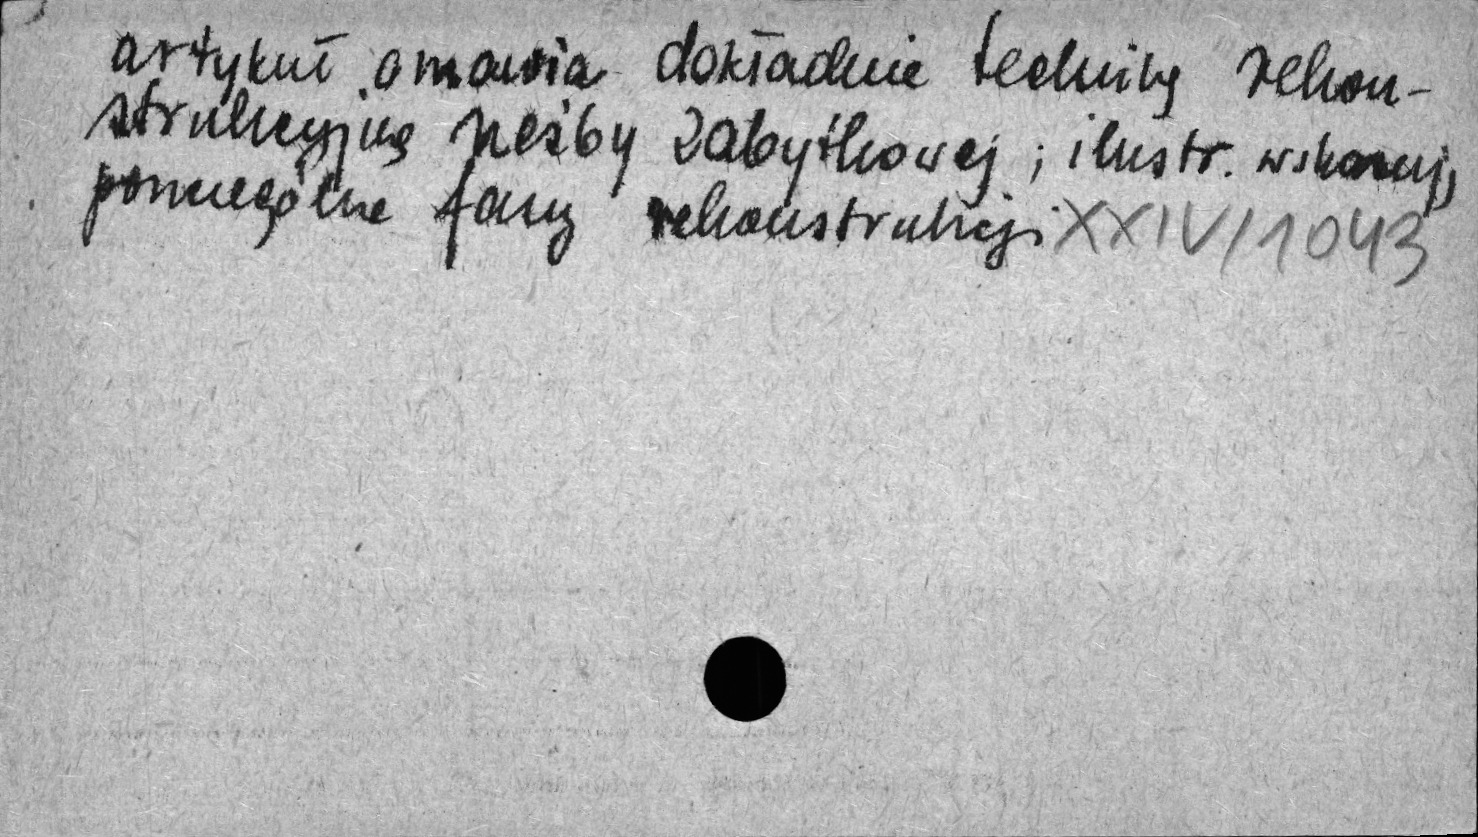 artykuł omawia dokładnie techniky rekon-
strukcyjną rzeźby zabytkowej; ilustr. wskazują
poszczególne fazy rekonstrukcji XXIV/1043